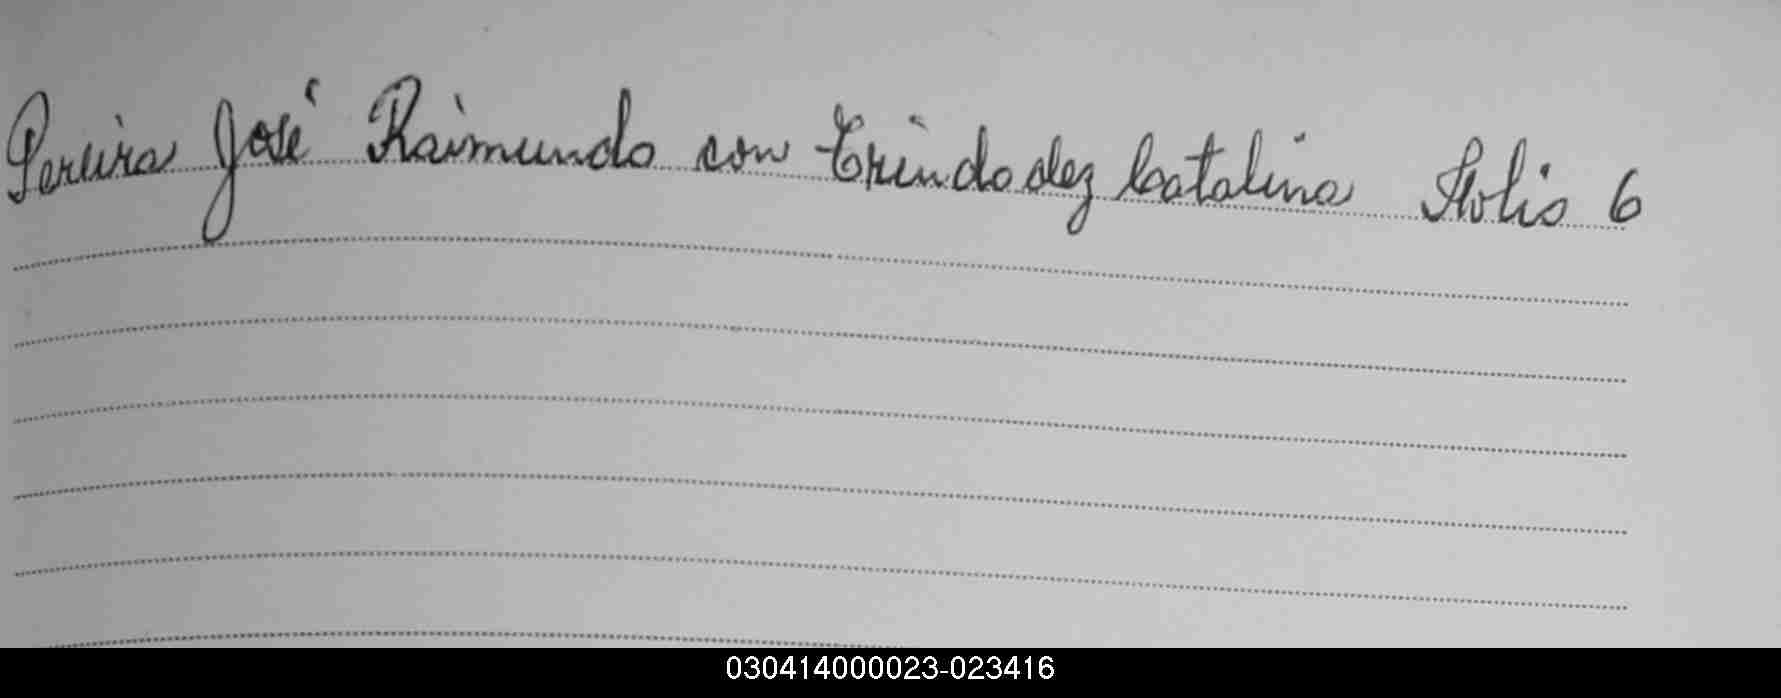 Pereira José Raimundo con Trindadez Catalina Folio 6
030414000023-023416